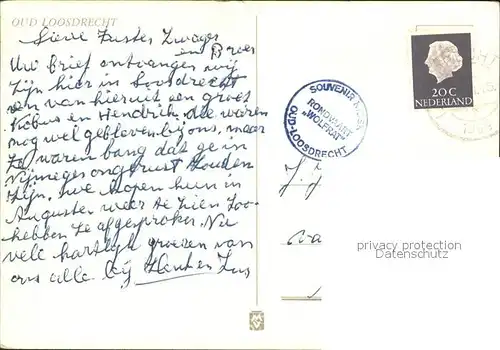 OUD LOOSDRECHT
Lieve Zuster Zwager
en Broer
Uw brief ontvangen wij
zijn hier in Loosdrecht
en van hieruit een groet
Kobus en Hendrik die waren
nog wel gebleven bij ons, maar
ze waren bang dat ge in
Nijmegen ongerust zouden
zijn. we hopen hun in
Augustus weer te zien zoo
hebben ze afgesproken. Nu
vele hartelijk groeten van
ons alle bij
SOUVENIR
RONDVAART
"WOLFRAT"
OUD-LOOSDRECHT
20 C
NEDERLAND
J.
privacy protection
watermark